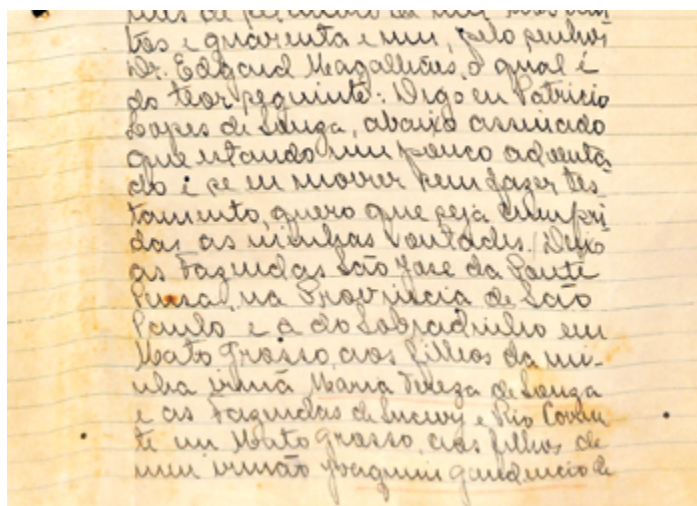 mês de setembro de mil novecen
tos e quarenta e um, pelo senhor
Dr. Edgard Magalhães, o qual é
do teor seguinte: Digo eu Patricio
Lopes de Souza, abaixo assinado
que estando um pouco adoenta
do i se eu morrer sem fazer tes
tamento, quero que seja cumpri
das as minhas vontades. Deixo
as Fazendas São José da Ponte
Pensa, na Provincia de São
Paulo e a do Sobradinho em
Mato Grosso, aos filhos da mi-
nha irmã Maria Tereza de Souza
e as Fazendas de e Rio
te em Mato Grosso, aos filhos de
meu irmão Joaquim Gaudencio de